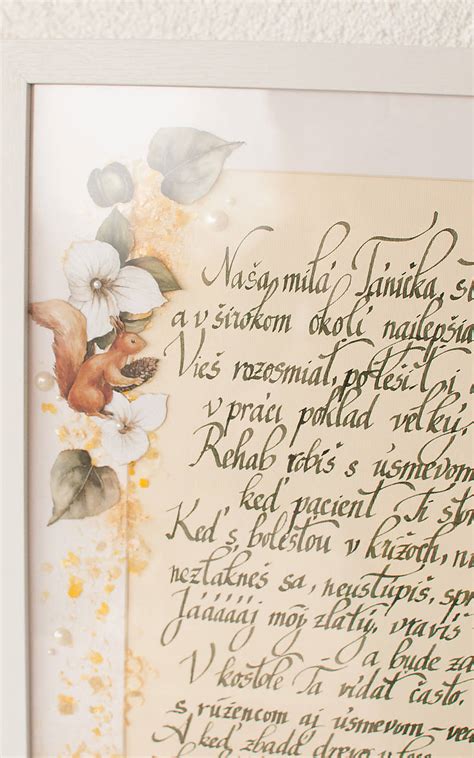 Naša milá Tánička, si
a v širokom okolí najlepšia
Vieš rozosmiať, potešiť i
v práci poklad veľký,
Rehab robíš s úsmevom
keď pacient Ti
Keď s bolesťou v krížoch,
nezľakneš sa, neustúpiš,
Jááááj môj zlatý, vravíš
a bude
V kostole Ťa vídať často.
s ružencom aj úsmevom
A keď zbadá drevo